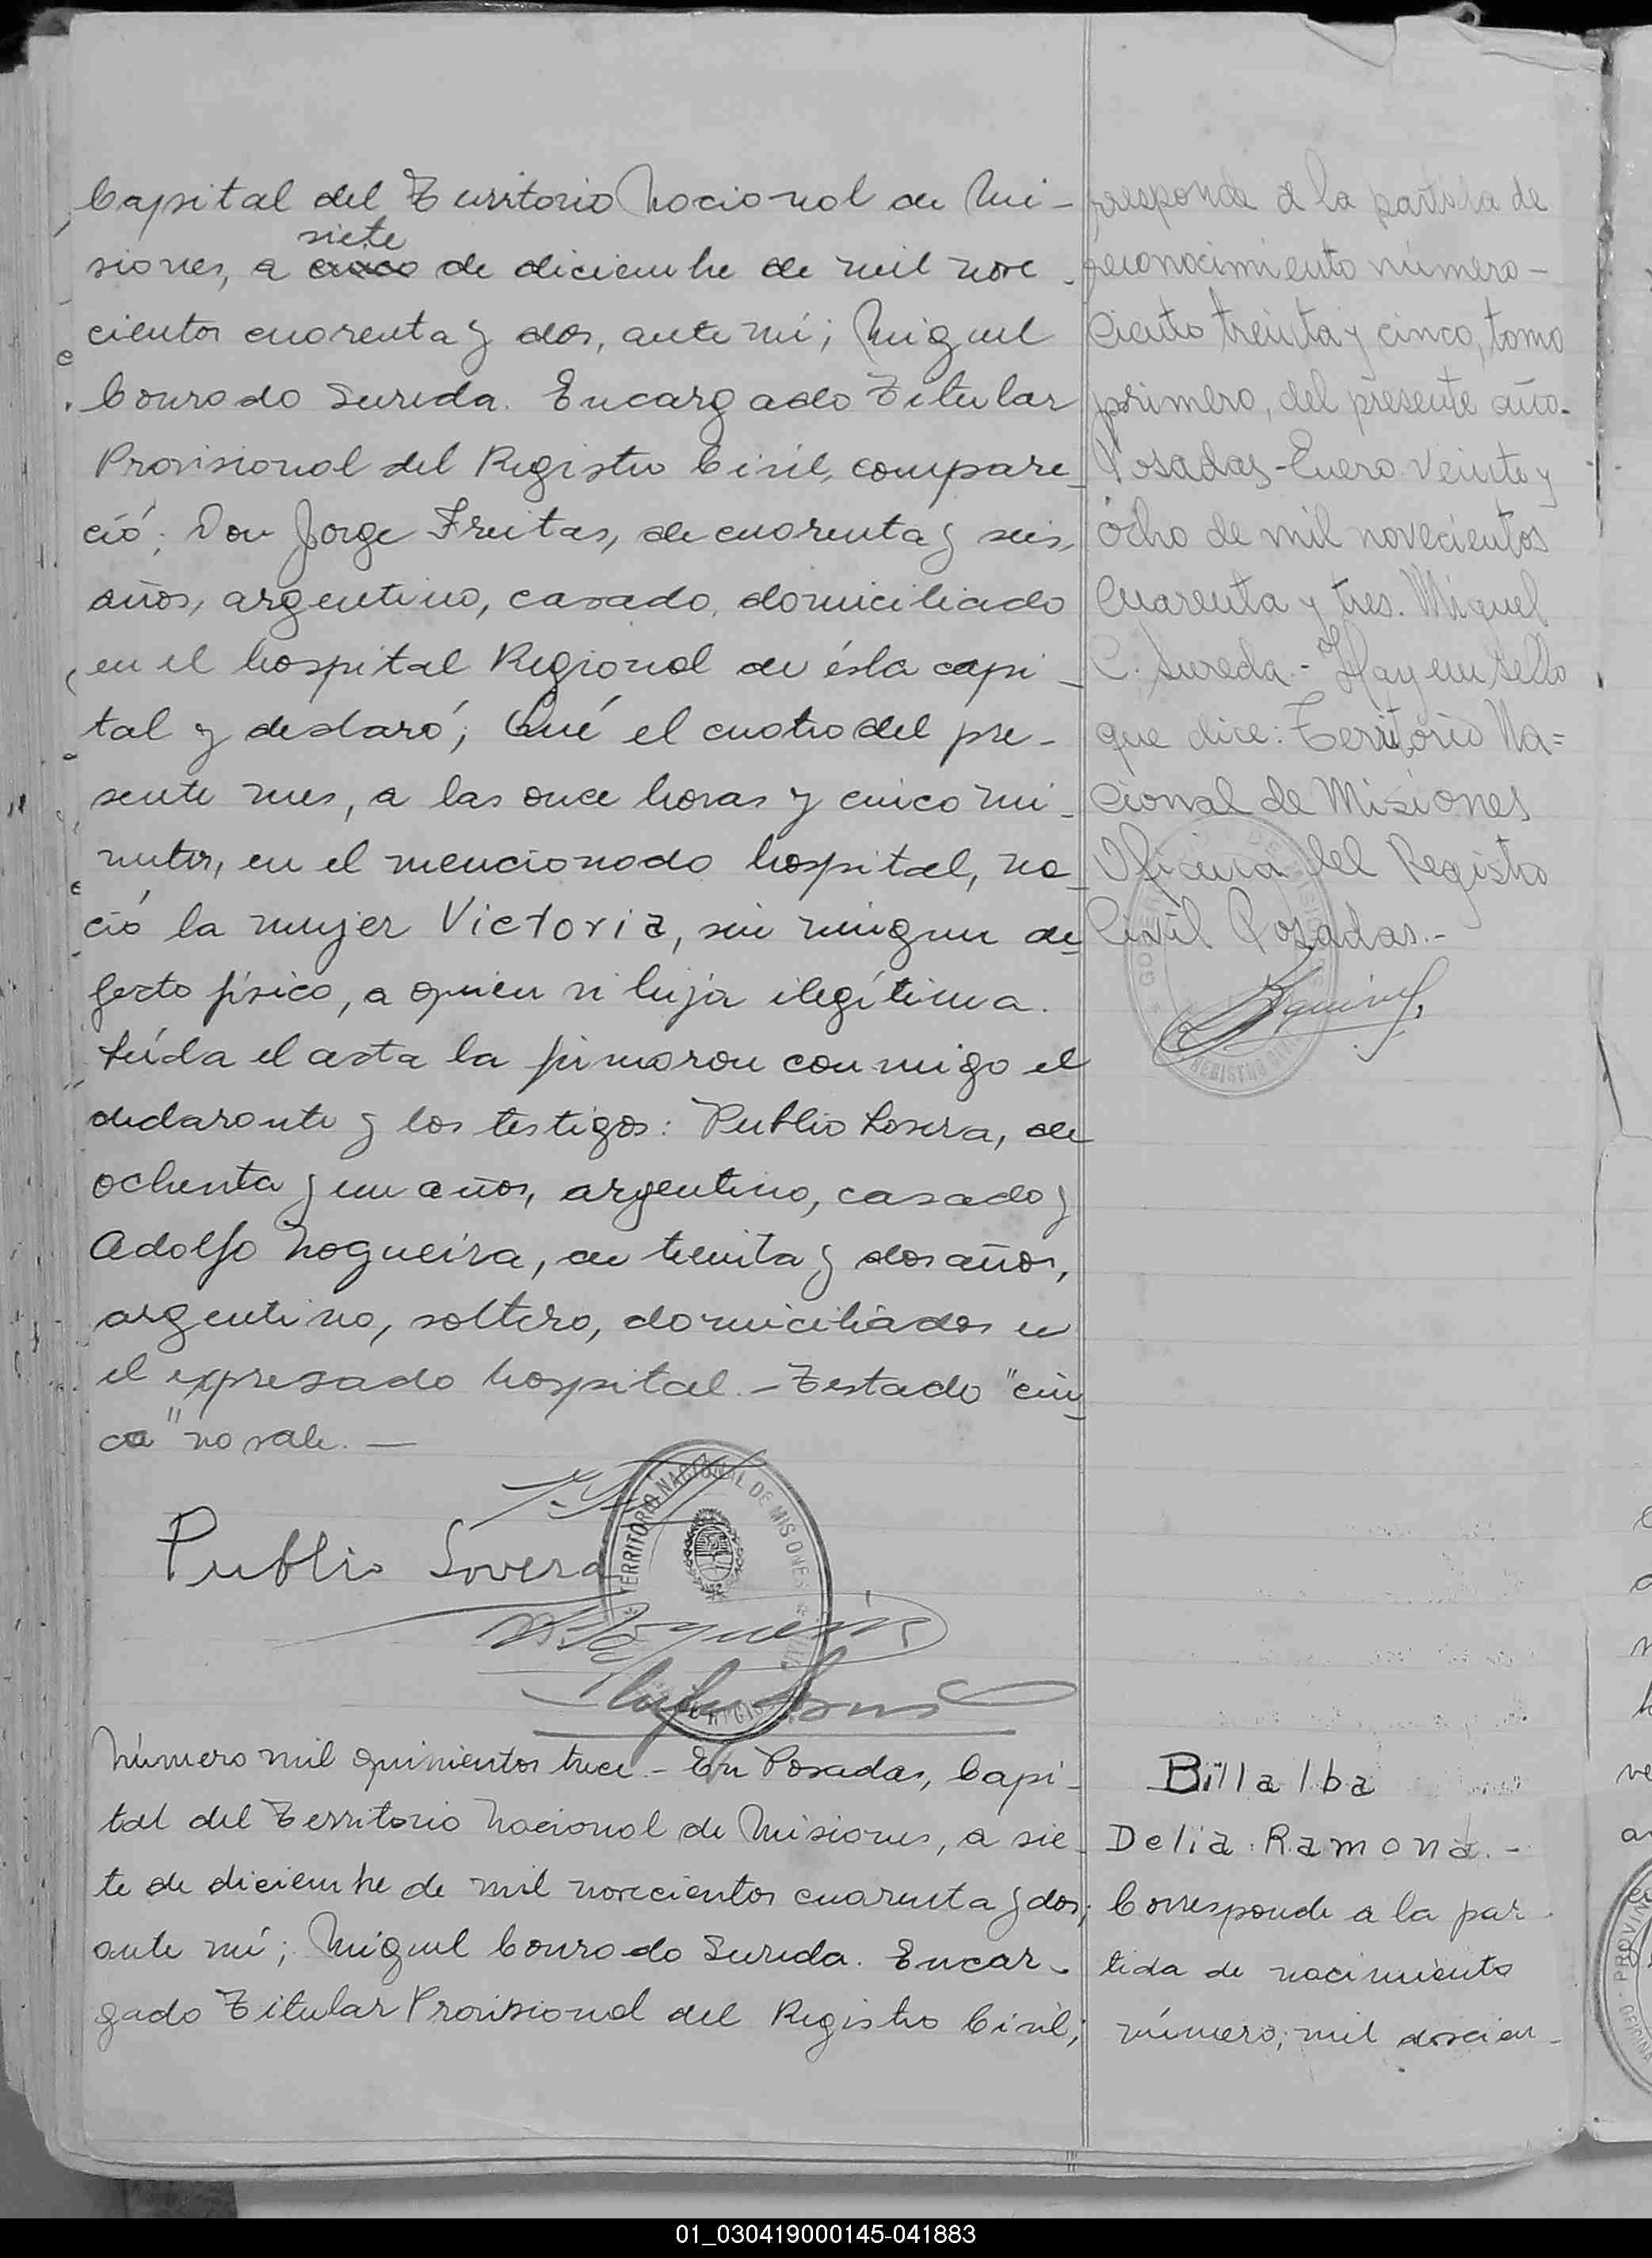 Capital del Territorio Nacional de Mi-
siete
siones, a cinco de diciembre de mil nove
cientos cuarenta y dos, ante mí; Miguel
Conrado Sureda. Encargado Titular
Provisional del Registro Civil, compare-
ció; Don Jorge Freitas, de cuarenta y seis,
años, argentino, casado, domiciliado
en el hospital Regional de ésta capi-
tal y declaró; Qué el cuatro del pre-
sente mes, a las once horas y cinco mi-
nutos, en el mencionado hospital, na-
ció la mujer Victoria, sin ningun de-
fecto físico, a quien vi hija ilegítima.
Leída el acta la firmaron conmigo el
declarante y los testigos: Publio Lovera, de
ochenta y un años, argentino, casado y
Adolfo Nogueira, de treinta y dos años,
argentino, soltero, domiciliados en
el expresado hospital. - Testado "cin-
co" no vale. —
Publio Lovera
TERRITORIO NACIONAL DE MISIONES
Número mil quinientos trece. - En Posadas, Capi-
tal del Territorio Nacional de Misiones, a sie-
te de diciembre de mil novecientos cuarenta y dos;
ante mí; Miguel Conrado Sureda. Encar-
gado Titular Provisional del Registro Civil;
rresponde a la partida de
reconocimiento número-
Ciento treinta y cinco, tomo
primero, del presente año.
Posadas-Enero veinte y
ócho de mil novecientos
Cuarenta y tres. Miguel
C. Sureda.- Hay un sello
que dice: Territorio Na=
cional de Misiones
Oficina del Registro
Civil Posadas.-
Billalba
Delia Ramona.-
Corresponde a la par
tida de nacimiento
número; mil doscien-
01_030419000145-041883